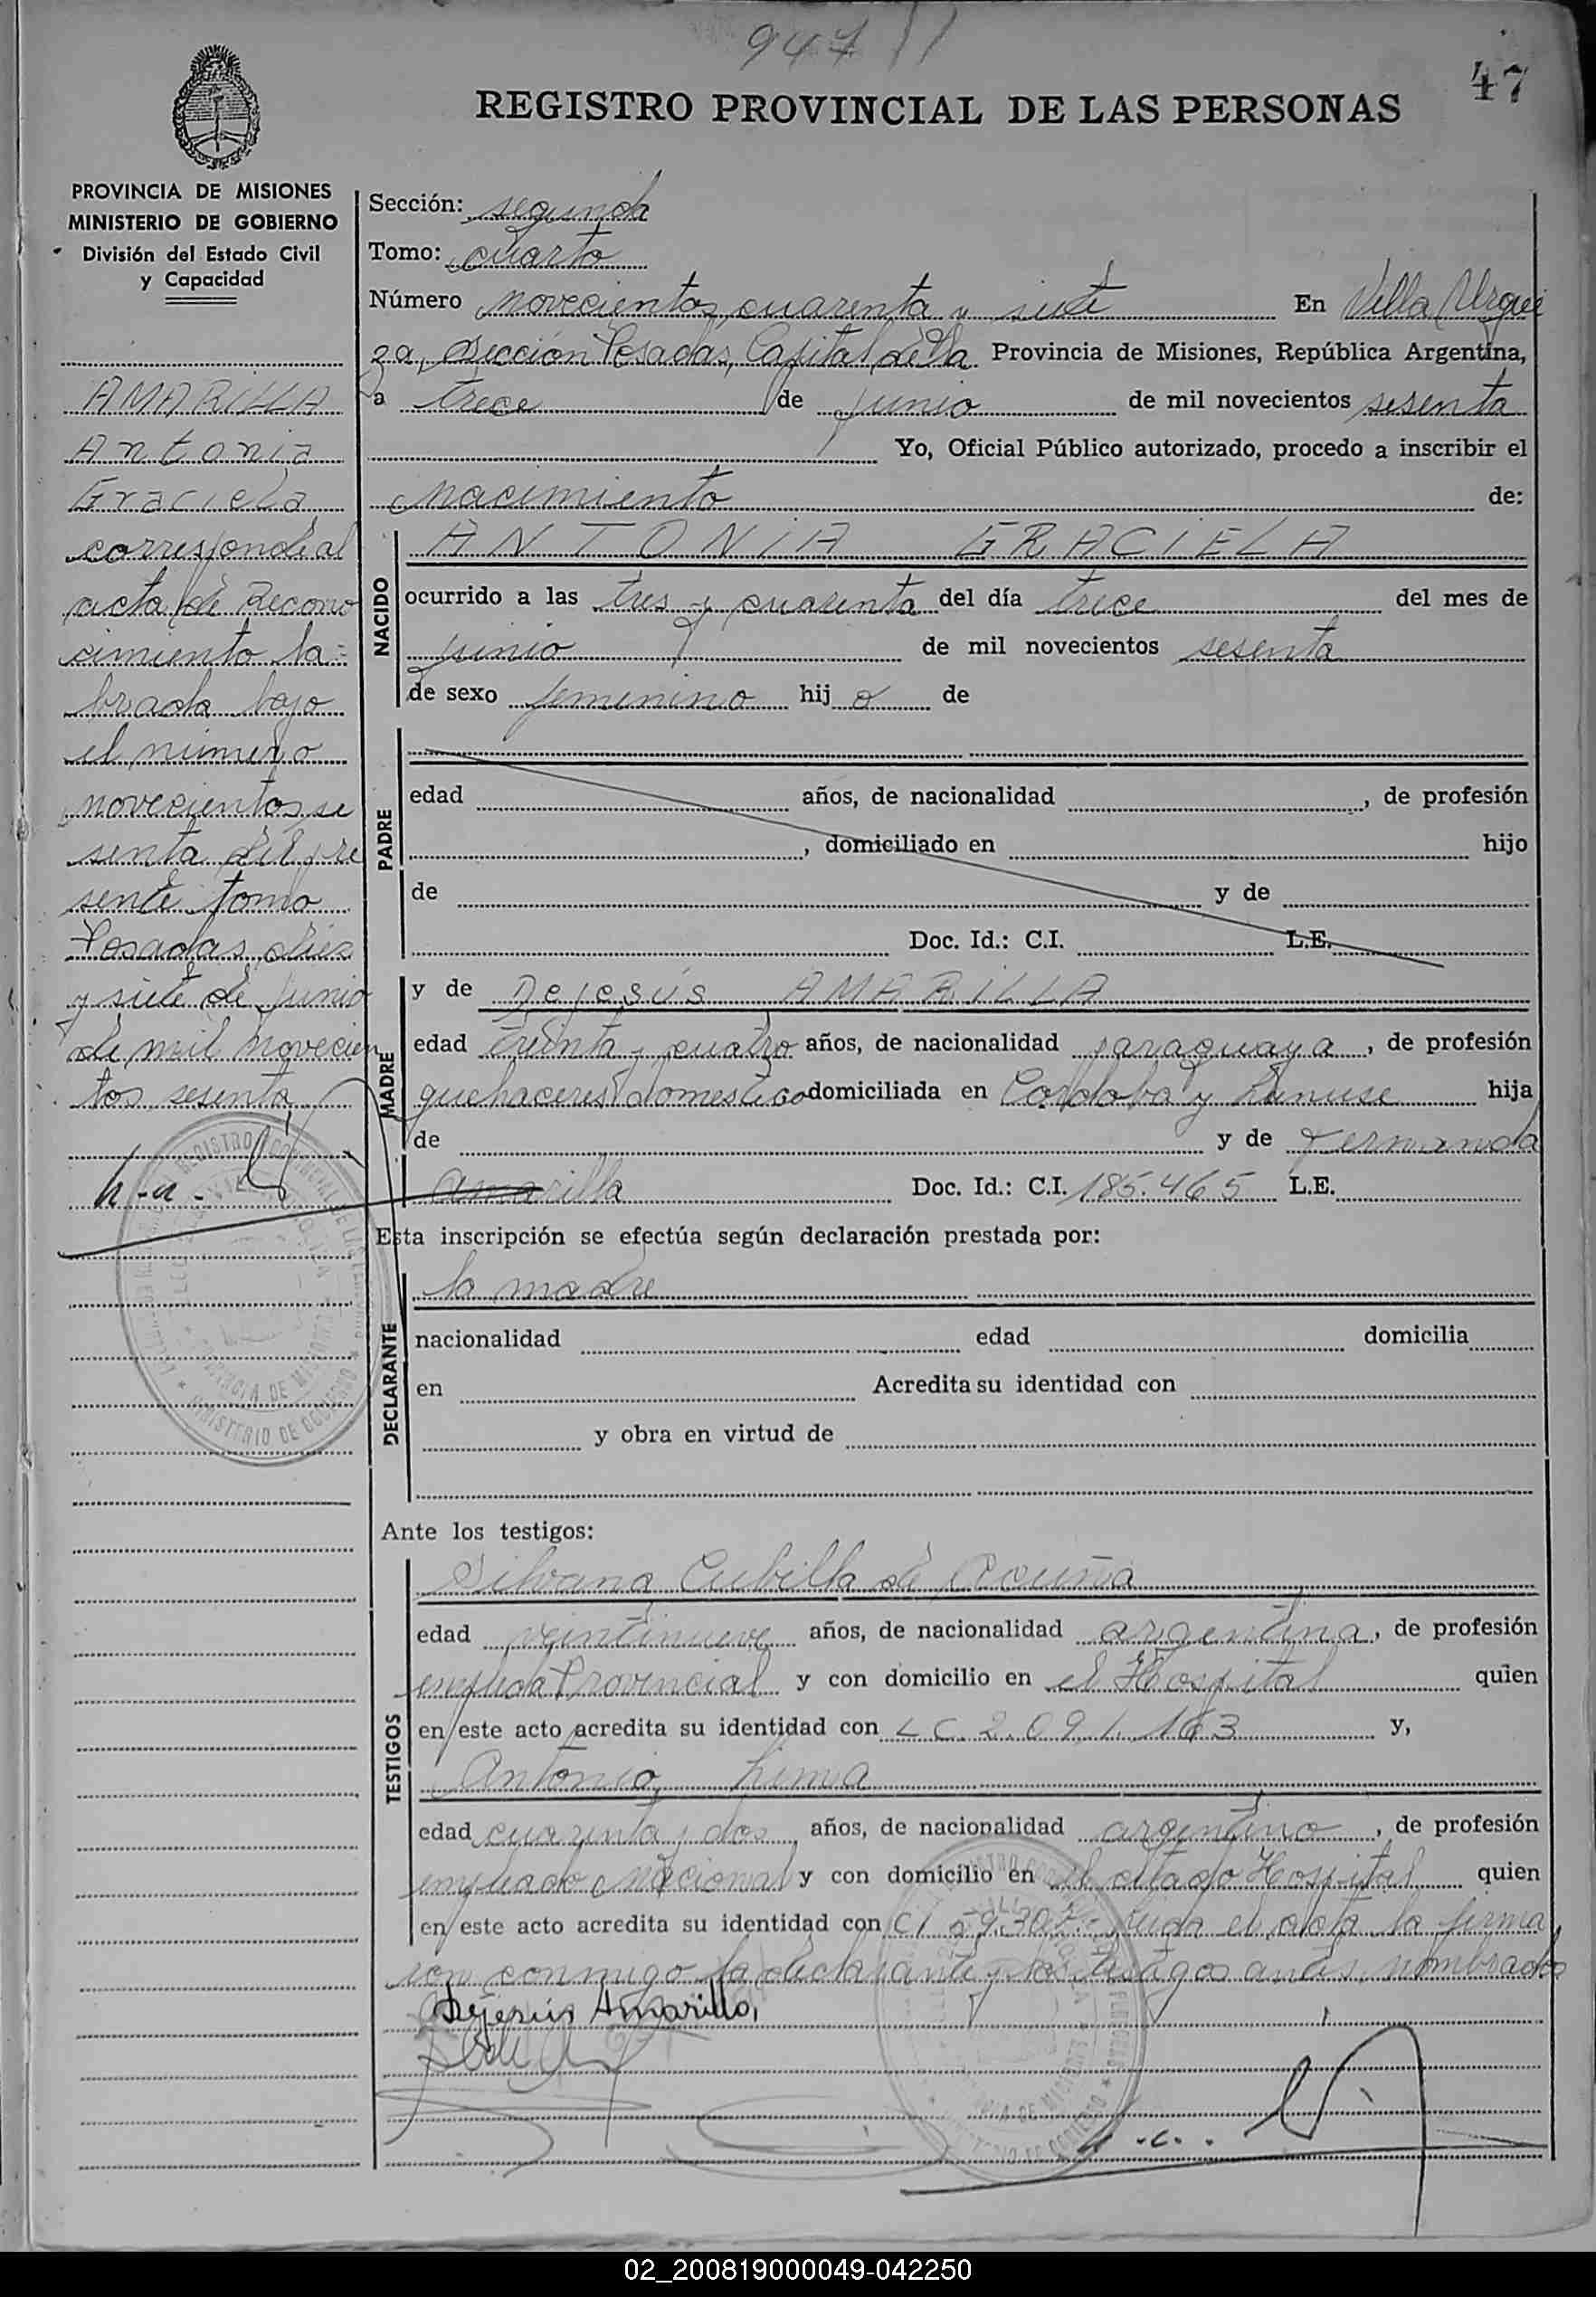 947
47
REGISTRO PROVINCIAL DE LAS PERSONAS
PROVINCIA DE MISIONES
MINISTERIO DE GOBIERNO
División del Estado Civil
y Capacidad
AMARILLA
Antonia
Graciela
corresponde al
acta de Recono
cimiento la-
brada bajo
el número
novecientos se
senta del pre
sente tomo
Posadas, diez
y siete de junio
de mil novecien
tos sesenta
Sección: segunda
Tomo: cuarto
Número novecientos cuarenta y siete En Villa Urqui
za, Sección Posadas, Capital de la Provincia de Misiones, República Argentina,
a trece de junio de mil novecientos sesenta
Yo, Oficial Público autorizado, procedo a inscribir el
nacimiento de:
NACIDO
ANTONIA GRACIELA
ocurrido a las tres y cuarenta del día trece del mes de
junio de mil novecientos sesenta
de sexo femenino hij a de
PADRE
edad años, de nacionalidad , de profesión
, domiciliado en hijo
de y de
Doc. Id.: C.I. L.E.
MADRE
y de Dejesús AMARILLA
edad treinta y cuatro años, de nacionalidad paraguaya, de profesión
quehaceres domestico domiciliada en Cordoba y Lanuse hija
de y de Fernanda
Amarilla Doc. Id.: C.I. 185.465 L.E.
Esta inscripción se efectúa según declaración prestada por:
DECLARANTE
la madre
nacionalidad edad domicilia
en Acredita su identidad con
y obra en virtud de
Ante los testigos:
TESTIGOS
Silvana Cubilla de Acuña
edad veintinueve años, de nacionalidad argentina, de profesión
empleada Provincial y con domicilio en el Hospital quien
en este acto acredita su identidad con LC 2.091.163 y,
Antonio Lima
edad cuarenta y dos años, de nacionalidad argentino, de profesión
empleado Nacional y con domicilio en el citado Hospital quien
en este acto acredita su identidad con CI el acta la firma
ron conmigo la declarante y los testigos antes nombrados
Dejesús Amarilla,
02_200819000049-042250